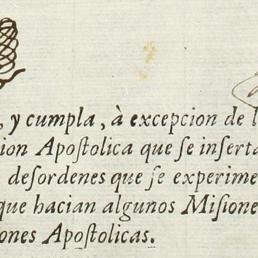 , y cumpla, à excepcion de l
ion Apoſtolica que ſe inſerta
deſordenes que ſe experime
que hacian algunos Miſione
ones Apoſtolicas.